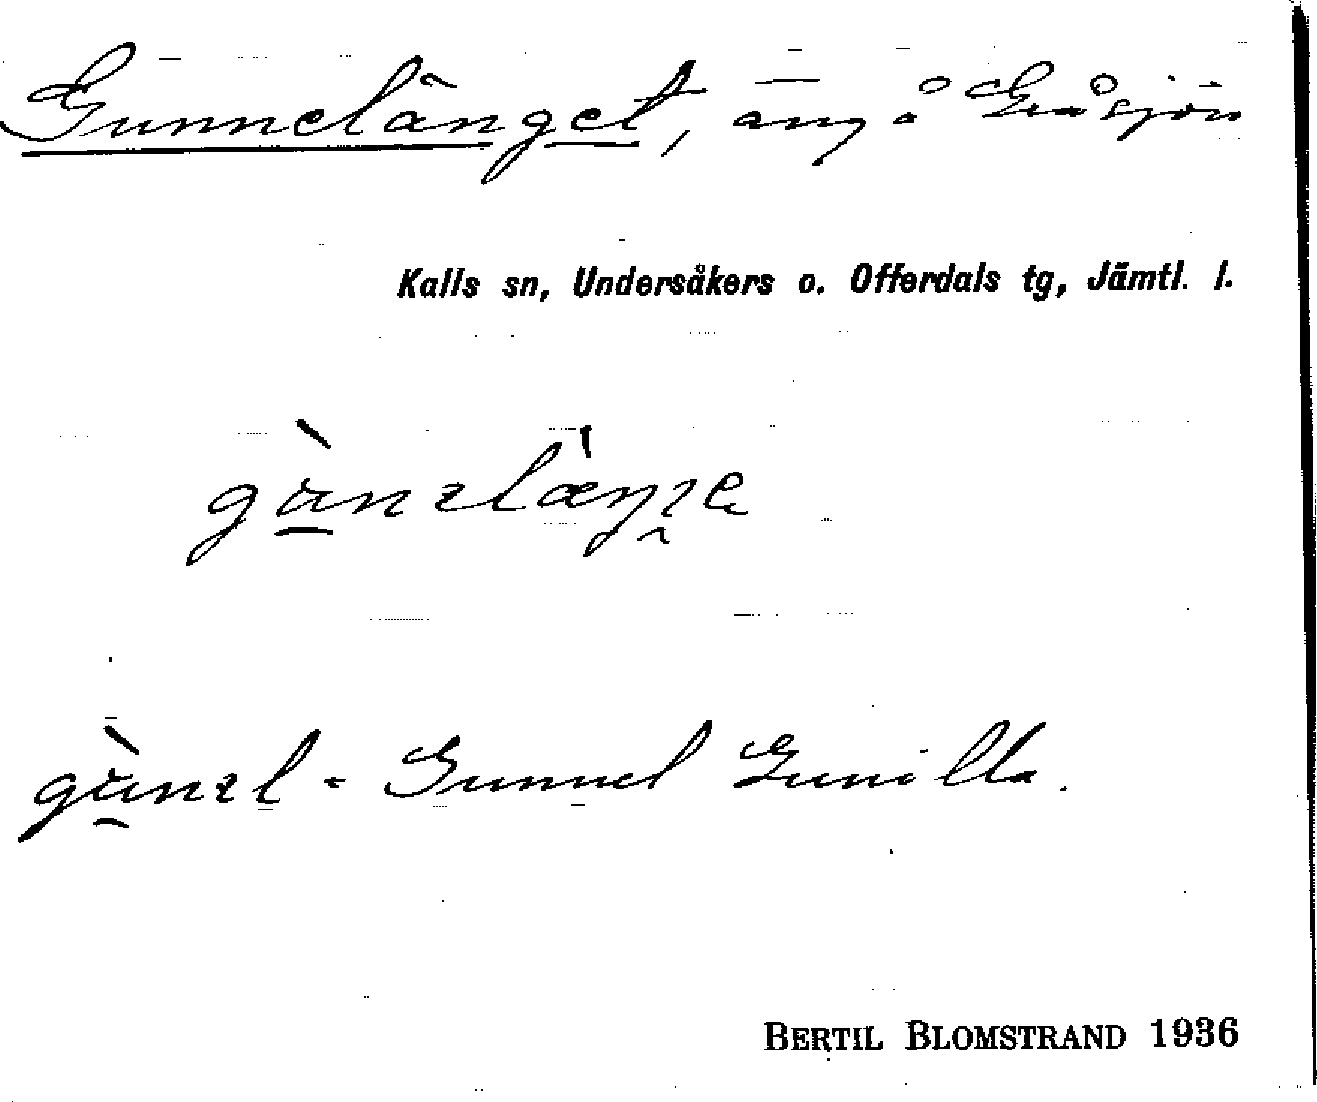 Gunnelänget, äng å Gråsjön
Kalls sn, Undersåkers o. Offerdals tg, Jämtl. l.
gùnel - Gunnel Gunilla.
BERTIL BLOMSTRAND 1936